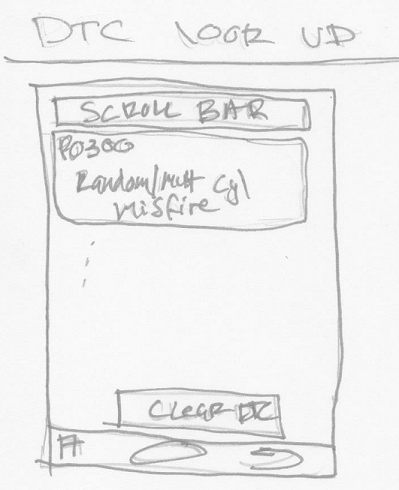 DTC LOOK UP
SCROLL BAR
P0300
Random/Mult Cyl
Misfire
Clear DTC